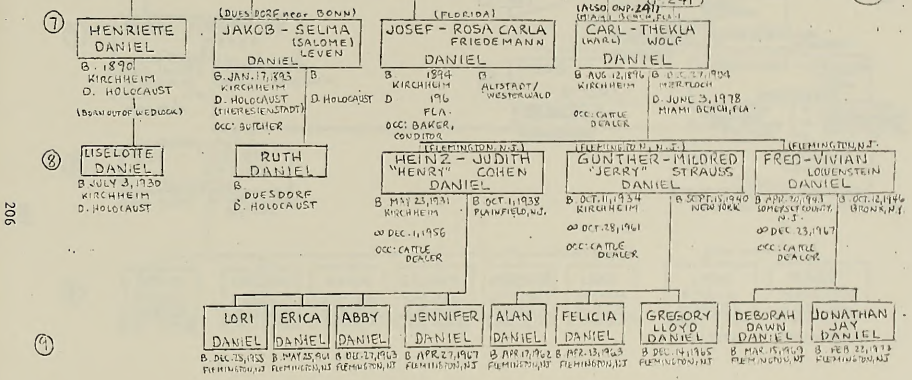 (DUESDORF near BONN)
(FLORIDA)
(ALSO ON P. 241)
(MIAMI BEACH, FLA.)
7
HENRIETTE
DANIEL
B. 1890
KIRCHHEIM
D. HOLOCAUST
(BORN OUT OF WEDLOCK)
JAKOB - SELMA
(SALOME)
LEVEN
DANIEL
B. JAN. 17, 1893
KIRCHHEIM
D. HOLOCAUST
(THERESIENSTADT)
OCC: BUTCHER
B
D. HOLOCAUST
JOSEF - ROSA CARLA
FRIEDEMANN
DANIEL
B. 1894
KIRCHHEIM
D 196
FLA.
OCC: BAKER,
CONDITOR
B.
ALTSTADT/
WESTERWALD
CARL - THEKLA
(KARL) WOLF
DANIEL
B AUG 12, 1896
KIRCHHEIM
OCC: CATTLE
DEALER
B. DEC. 27, 1904
D. JUNE 3, 1978
MIAMI BEACH, FLA.
8
LISELOTTE
DANIEL
B JULY 3, 1930
KIRCHHEIM
D. HOLOCAUST
RUTH
DANIEL
B.
DUESDORF
D. HOLOCAUST
(FLEMINGTON, N.J.)
HEINZ - JUDITH
"HENRY" COHEN
DANIEL
B MAY 23, 1931
KIRCHHEIM
∞ DEC. 1, 1956
OCC: CATTLE
DEALER
B OCT. 1, 1938
PLAINFIELD, N.J.
(FLEMINGTON, N.J.)
GUNTHER - MILDRED
"JERRY" STRAUSS
DANIEL
B. OCT. 11, 1934
KIRCHHEIM
∞ OCT. 28, 1961
OCC: CATTLE
DEALER
B. SEPT. 15, 1940
NEW YORK
(FLEMINGTON, N.J.
FRED - VIVIAN
LOWENSTEIN
DANIEL
B APR. 20, 1943
SOMERSET COUNTY,
N.J.
∞ DEC. 23, 1967
OCC: CATTLE
DEALER
B. OCT. 12, 1946
BRONX, N.Y.
206
9
LORI
DANIEL
FLEMINGTON, NJ
ERICA
DANIEL
B. MAY 25, 1961
FLEMINGTON, NJ
ABBY
DANIEL
B DEC. 27, 1963
FLEMINGTON, NJ
JENNIFER
DANIEL
B APR 27, 1967
FLEMINGTON, NJ
ALAN
DANIEL
B APR 17, 1962
FLEMINGTON, NJ
FELICIA
DANIEL
B APR. 13, 1963
FLEMINGTON, NJ
GREGORY
LLOYD
DANIEL
B DEC. 14, 1965
FLEMINGTON, NJ
DEBORAH
DAWN
DANIEL
B MAR. 15, 1969
FLEMINGTON, NJ
JONATHAN
JAY
DANIEL
B FEB 22,
FLEMINGTON, NJ